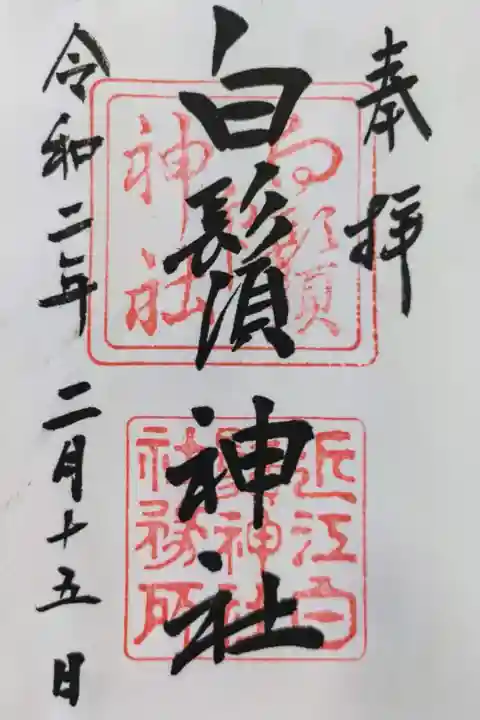 奉拝
白鬚神社
令和二年 二月十五日
白鬚
神社
近江白
鬚神社
社務所